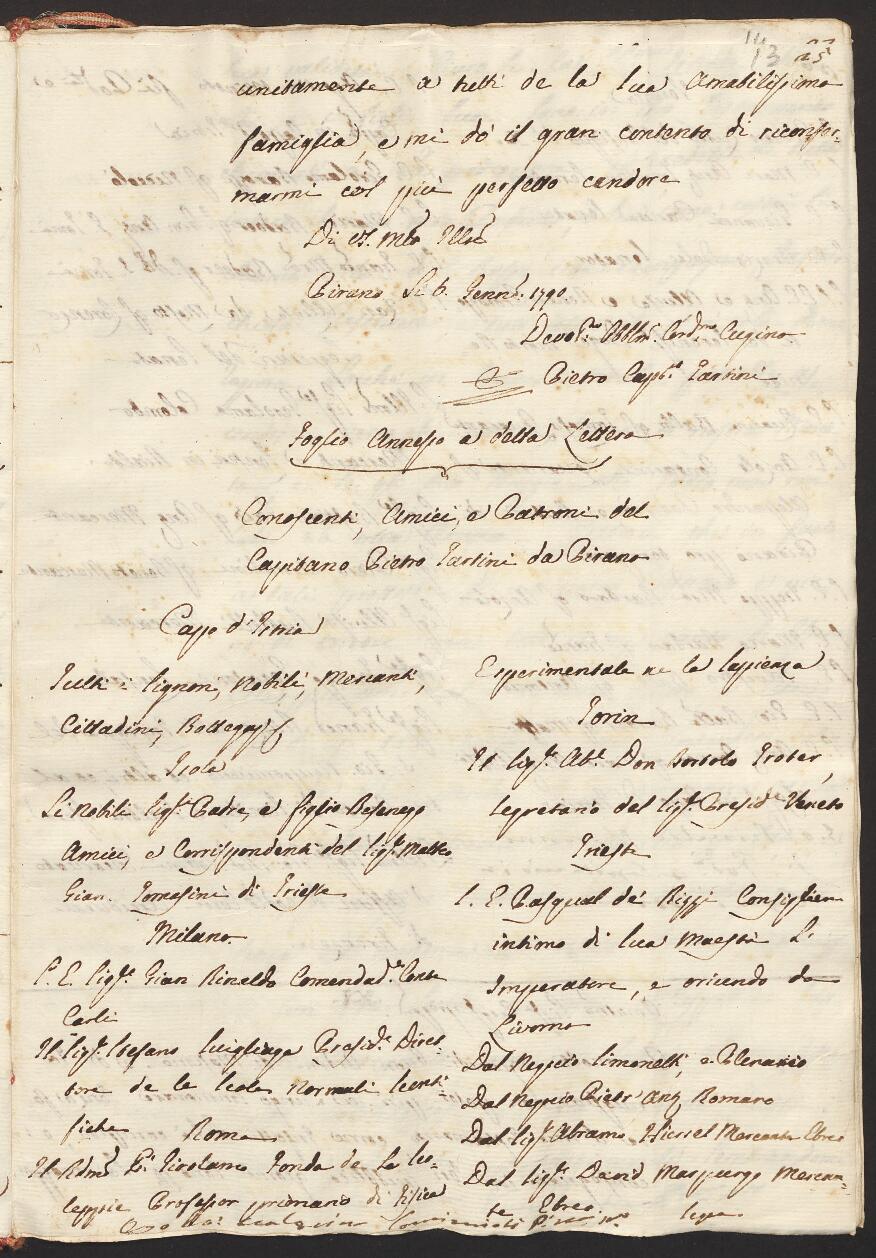 13 25
unitamente a tutti de la sua Amabilissima
famiglia, e mi dò il gran contento di riconfer-
marmi col più perfetto candore
Di VS. Mto Illre
Pirano Li 6. Gennro. 1790.
Devotmo Obblmo. Cordmo Cugino
Pietro Captn Tartini
Foglio Annesso a detta Lettera
Conoscenti, Amici, e Patroni del
Cappitano Pietro Tartini da Pirano
Cappo d'Istria
Tutti i Signori, Nobili, Mercanti,
Cittadini, Bottegaj
Isola
Li Nobili Sigri Padre, e figlio Besengo
Amici, e Corrispondenti del Sigr. Matteo
Gian. Tomasini di Trieste
Milano
S. E. Sigr. Gian Rinaldo Comendadre Conte
Carli
Il Sigr. Stefano Presidte Diret-
tore de le Scole Normali Scenti-
fiche
Roma
Il Rdmo Pre Girolamo Fonda de Le Sco-
le pie Professor primario di Fisica
Esperimentale ne la Sapienza
Torin
Il Sigr. Abe. Don Bortolo
Segretario del Sigr. Preside Veneto
Trieste
S. E. Pasqual de' Rizzi Consiglier
intimo di Sua Maestà L'
Imperatore, e oriundo da
Livorno
Dal Negozio Simonetti, e
Dal Negozio Pietr' Ang. Romano
Dal Sigr. Abramo Mercante Ebreo
Dal Sigr. David Marpurgo Mercan-
te Ebreo